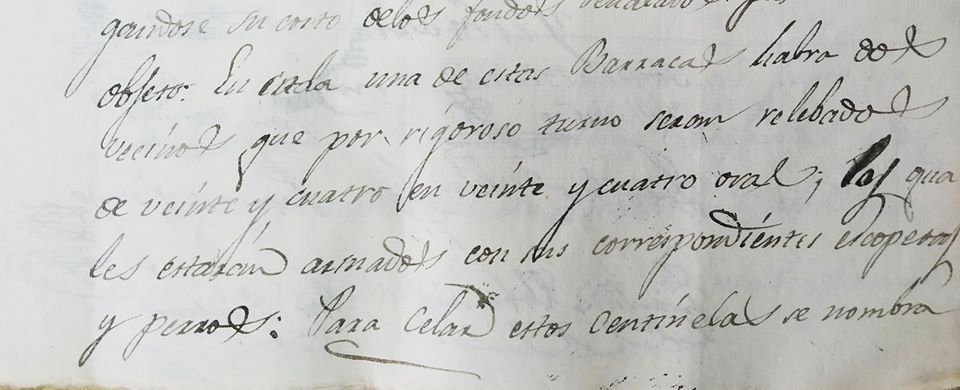 gandose su costo de los fondos
objeto: En cada una de estas Barracas habra dos
vecinos que por rigoroso turno seran relebados
de veinte y cuatro en veinte y cuatro oras; los qua
les estarán armados con sus correspondientes escopetas
y perros: Para Celar estos Centinelas se nombra